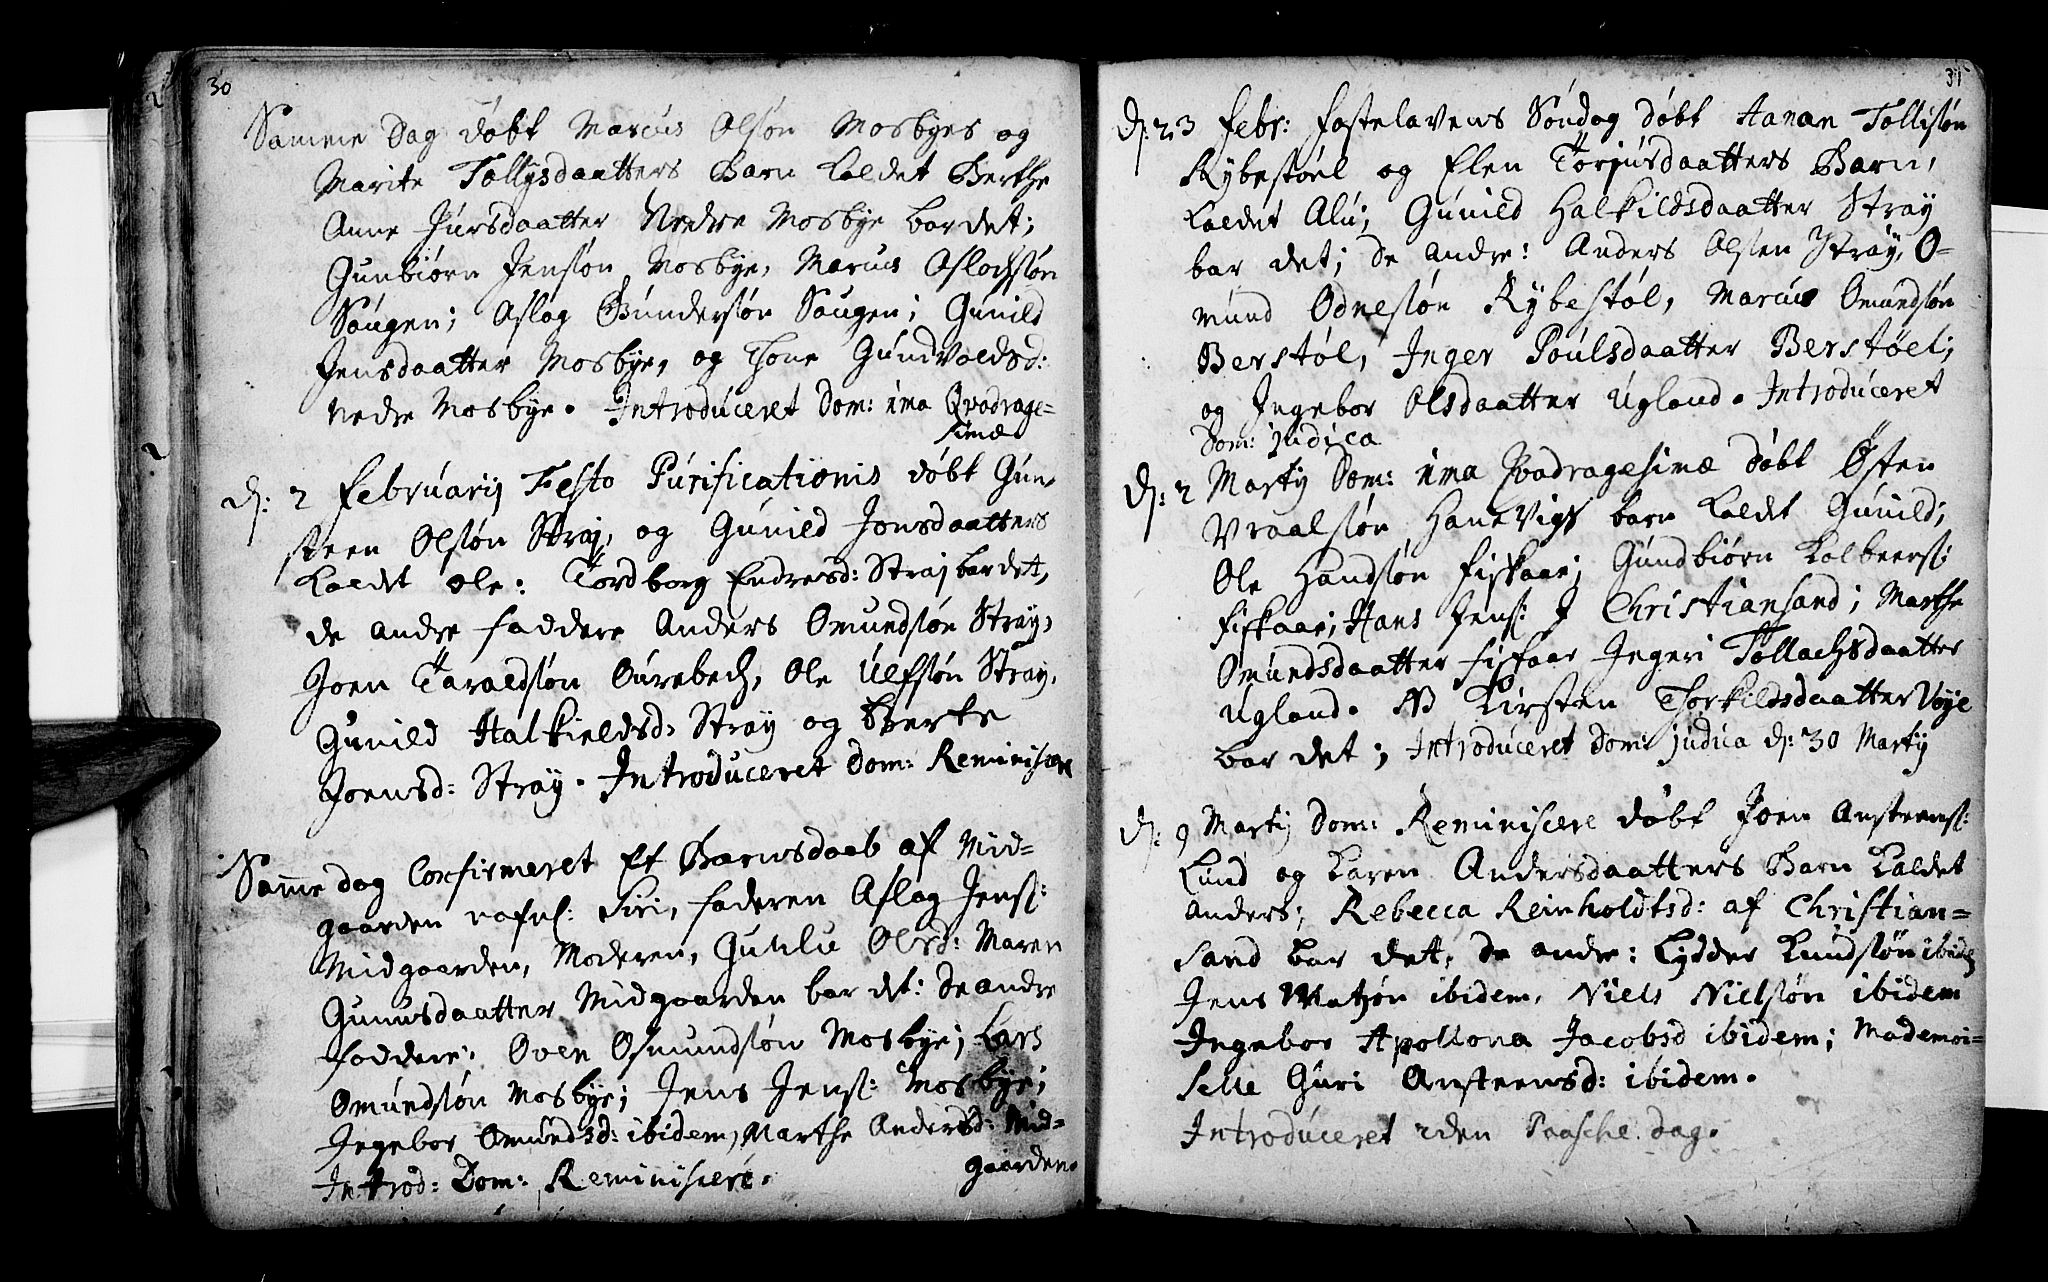 30
Samme Dag døbt Marcus Olsøn Mosbyes og
Marite Tollysdaatters Barn Kaldet Berthe
Anne Jursdaatter Nedre Mosbye bar det;
Gunbiørn Jensøn Mosbye, Marcus Aslachsøn
Saugen; Aslag Gundersøn Saugen; Gunild
Jensdaatter Mosbye, og Thone Gundvoldsd:
Nedre Mosbye. Introduceret Dom: 1ma Qvadrage=
simæ
d: 2 Februarij Festo Purificationis døbt Gun-
steen Olsøn Straj, og Gunild Jonsdaatters
Kaldet Ole: Tordborg Endresd: Straj bar dett,
de andre faddere Anders Omundsøn Straj,
Joen Taraldsøn Aurebech, Ole Ulfsøn Stray,
Gunild Halkieldsd: Straÿ og Berte
Joensd: Straÿ. Introduceret Dom: Reminiscere
Samme dag Confirmeret Et Barnsdaab af Mid=
gaarden nafnl: Siri, faderen Aslag Jens:
Midgaarden, Moderen, Gunlu Olsd: Maren
Gunusdaatter Midgaarden bar det: de andre
faddere: Oven Osmundsøn Mosbye; Lars
Omundsøn Mosbye; Jens Jens: Mosbye;
Ingebor Omundsd: ibidem, Marthe Andersd: Mid=
gaarden.
Introd: Dom: Reminiscere.
31
d: 23 Febr: Fastelavens Søndag døbt Aanan Tollisøn
Rybestøel og Elen Torjusdaatters Barn,
Kaldet Alu; Gunild Halkildsdaatter Straÿ
bar det; de andre: Anders Olsen Straÿ, O=
mund Odnesøn Rybestøl, Marcus Omundsøn
Berstøl, Inger Poulsdaatter Berstøel;
og Ingebor Olsdaatter Ugland. Introduceret
Dom: judica
d: 2 Martij Dom: 1ma Qvadragesimæ døbt Østen
Vraalsøn Hanevigs barn Kaldet Gunild;
Ole Handsøn Fiskaae; Gundbiørn Kolbeers:
Fiskaae; Hans Jens: J Christiansand; Marthe
Omundsdaatter Fiskaae Ingeri Tollachsdaatter
Ugland. NB Kirsten Thorkildsdaatter Vøye
bar det; Introduceret Dom: judica d: 30 Martij
d: 9 Martij Dom: Reminiscere døbt Joen Ansteens:
Lund og Karen Andersdaatters Barn Kaldet
Anders; Rebecca Reinholdtsd: af Christian=
sand bar dett, de andre: Lydder Knudsøn ibid
Jens Matzøn ibidem, Niels Nielsøn ibidem
Ingebor Apollona Jacobsd ibidem; Mademoi=
selle Guri Ansteensd: ibidem.
Introduceret 2den Paasche dag.